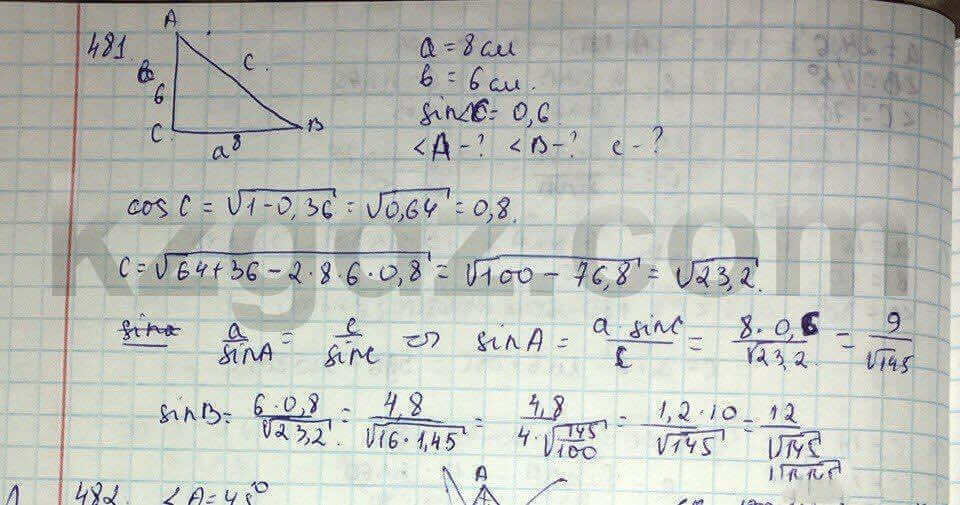 481.
A
C.
6
C
a 8
B
a = 8 см
b = 6 см.
sin∠C = 0,6
<A - ? <B - ? c - ?
cos C = √1-0,36 = √0,64 = 0,8.
C = √64+36-2·8·6·0,8 = √100-76,8 = √23,2.
a/sinA = c/sinC ⇔ sinA = a sinC/c = 8·0,6/√23,2 = 9/√145
sinB = 6·0,8/√23,2 = 4,8/√16·1,45 = 4,8/4·√145/100 = 1,2·10/√145 = 12/√145
482. <A = 45°
A
kzgdz.com